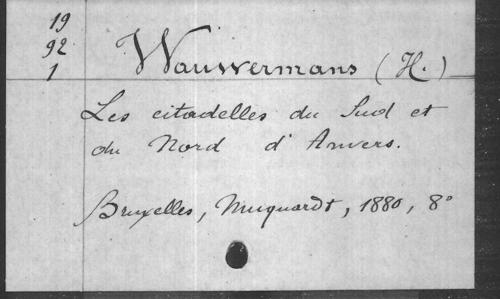 19
92
1
Wauwermans (H.)
Les citadelles du Sud et
du Nord d'Anvers.
Bruxelles, Muquardt, 1880, 8°